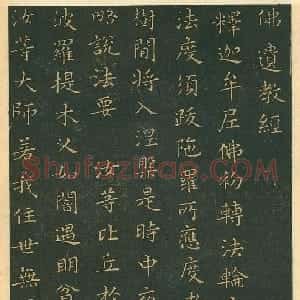 佛遺教經
釋迦牟尼佛初轉法輪
法度須跋陁羅所應度
樹間將入涅槃是時中夜
略說法要 汝等比丘於
波羅提木叉如闇遇明貧
汝等大師若我住世無